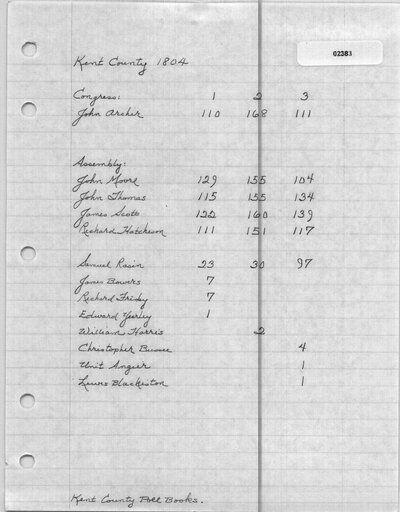 02383
Kent County 1804
Congress: 1 2 3
John Archer 110 168 111
Assembly:
John Moore 129 155 104
John Thomas 115 155 134
James Scott 122 160 139
Richard Hatcheson 111 151 117
Samuel Rasin 23 30 97
James Bowers 7
Richard Frisby 7
Edward Yeirley 1
William Harris 2
Christopher 4
Unit Angier 1
Lewis Blackiston 1
Kent County Poll Books.